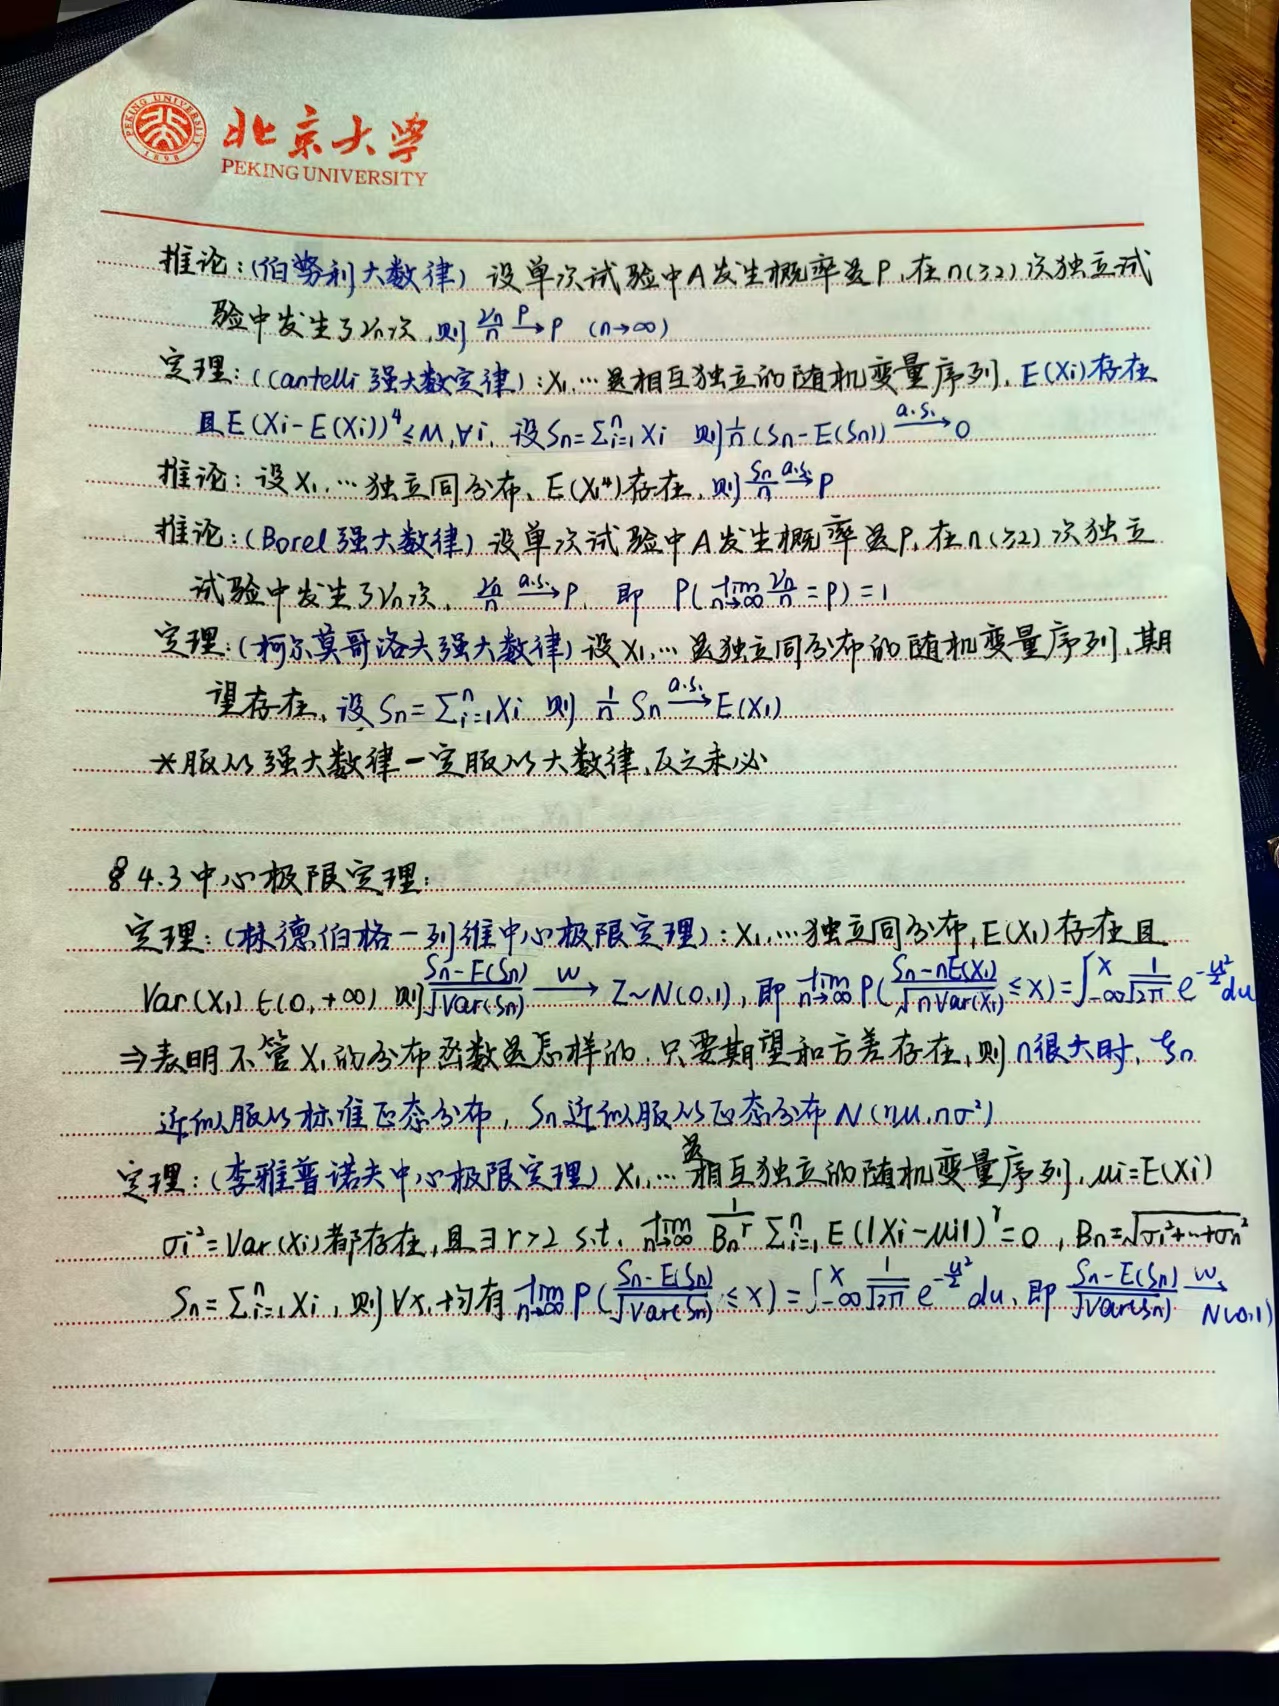 PEKING UNIVERSITY
1898
北京大学
PEKING UNIVERSITY
推论:(伯努利大数律) 设单次试验中A发生概率是P,在n(≥2)次独立试
验中发生了νn次,则 νn/n →P p (n→∞)
定理:(Cantelli 强大数定律):X₁,…是相互独立的随机变量序列,E(Xi)存在
且E(Xi-E(Xi))⁴≤M,∀i, 设Sn=∑ⁿᵢ₌₁Xi 则 1/n (Sn-E(Sn)) →a.s. 0
推论:设X₁,…独立同分布、E(X₁⁴)存在,则 Sn/n →a.s. P
推论:(Borel强大数律) 设单次试验中A发生概率是P,在n(≥2)次独立
试验中发生了νn次, νn/n →a.s. P, 即 P(lim n→∞ νn/n = P)=1
定理:(柯尔莫哥洛夫强大数律)设X₁,…是独立同分布的随机变量序列,期
望存在,设Sn=∑ⁿᵢ₌₁Xi 则 1/n Sn →a.s. E(X₁)
*服从强大数律一定服从大数律,反之未必
§4.3中心极限定理:
定理:(林德伯格-列维中心极限定理):X₁,…独立同分布,E(X₁)存在且
Var(X₁)∈(0,+∞) 则 (Sn-E(Sn))/√Var(Sn) →w Z~N(0,1), 即 lim n→∞ P((Sn-nE(X₁))/√(nVar(X₁)) ≤x)=∫₋∞ˣ 1/√2π e^(-u²/2) du
⇒表明不管X₁的分布函数是怎样的,只要期望和方差存在,则n很大时,ζn
近似服从标准正态分布, Sn近似服从正态分布N(nμ,nσ²)
定理:(李雅普诺夫中心极限定理) X₁,…是相互独立的随机变量序列,μi=E(Xi)
σi²=Var(Xi)都存在,且∃r>2 s.t. lim n→∞ 1/Bnʳ ∑ⁿᵢ₌₁E(|Xi-μi|)ʳ=0, Bn=√(σ₁²+…+σn²)
Sn=∑ⁿᵢ₌₁Xi,则∀x,均有 lim n→∞ P((Sn-E(Sn))/√Var(Sn) ≤x)=∫₋∞ˣ 1/√2π e^(-u²/2) du, 即 (Sn-E(Sn))/√Var(Sn) →w N(0,1)